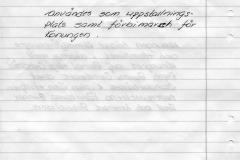 användes som uppställnings-
plats samt förbimarsch för
Konungen.